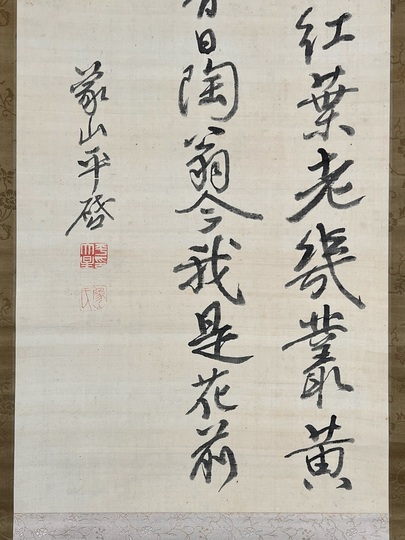 紅葉老幾叢黄
昔日陶翁今我是花前
蒙山平啓